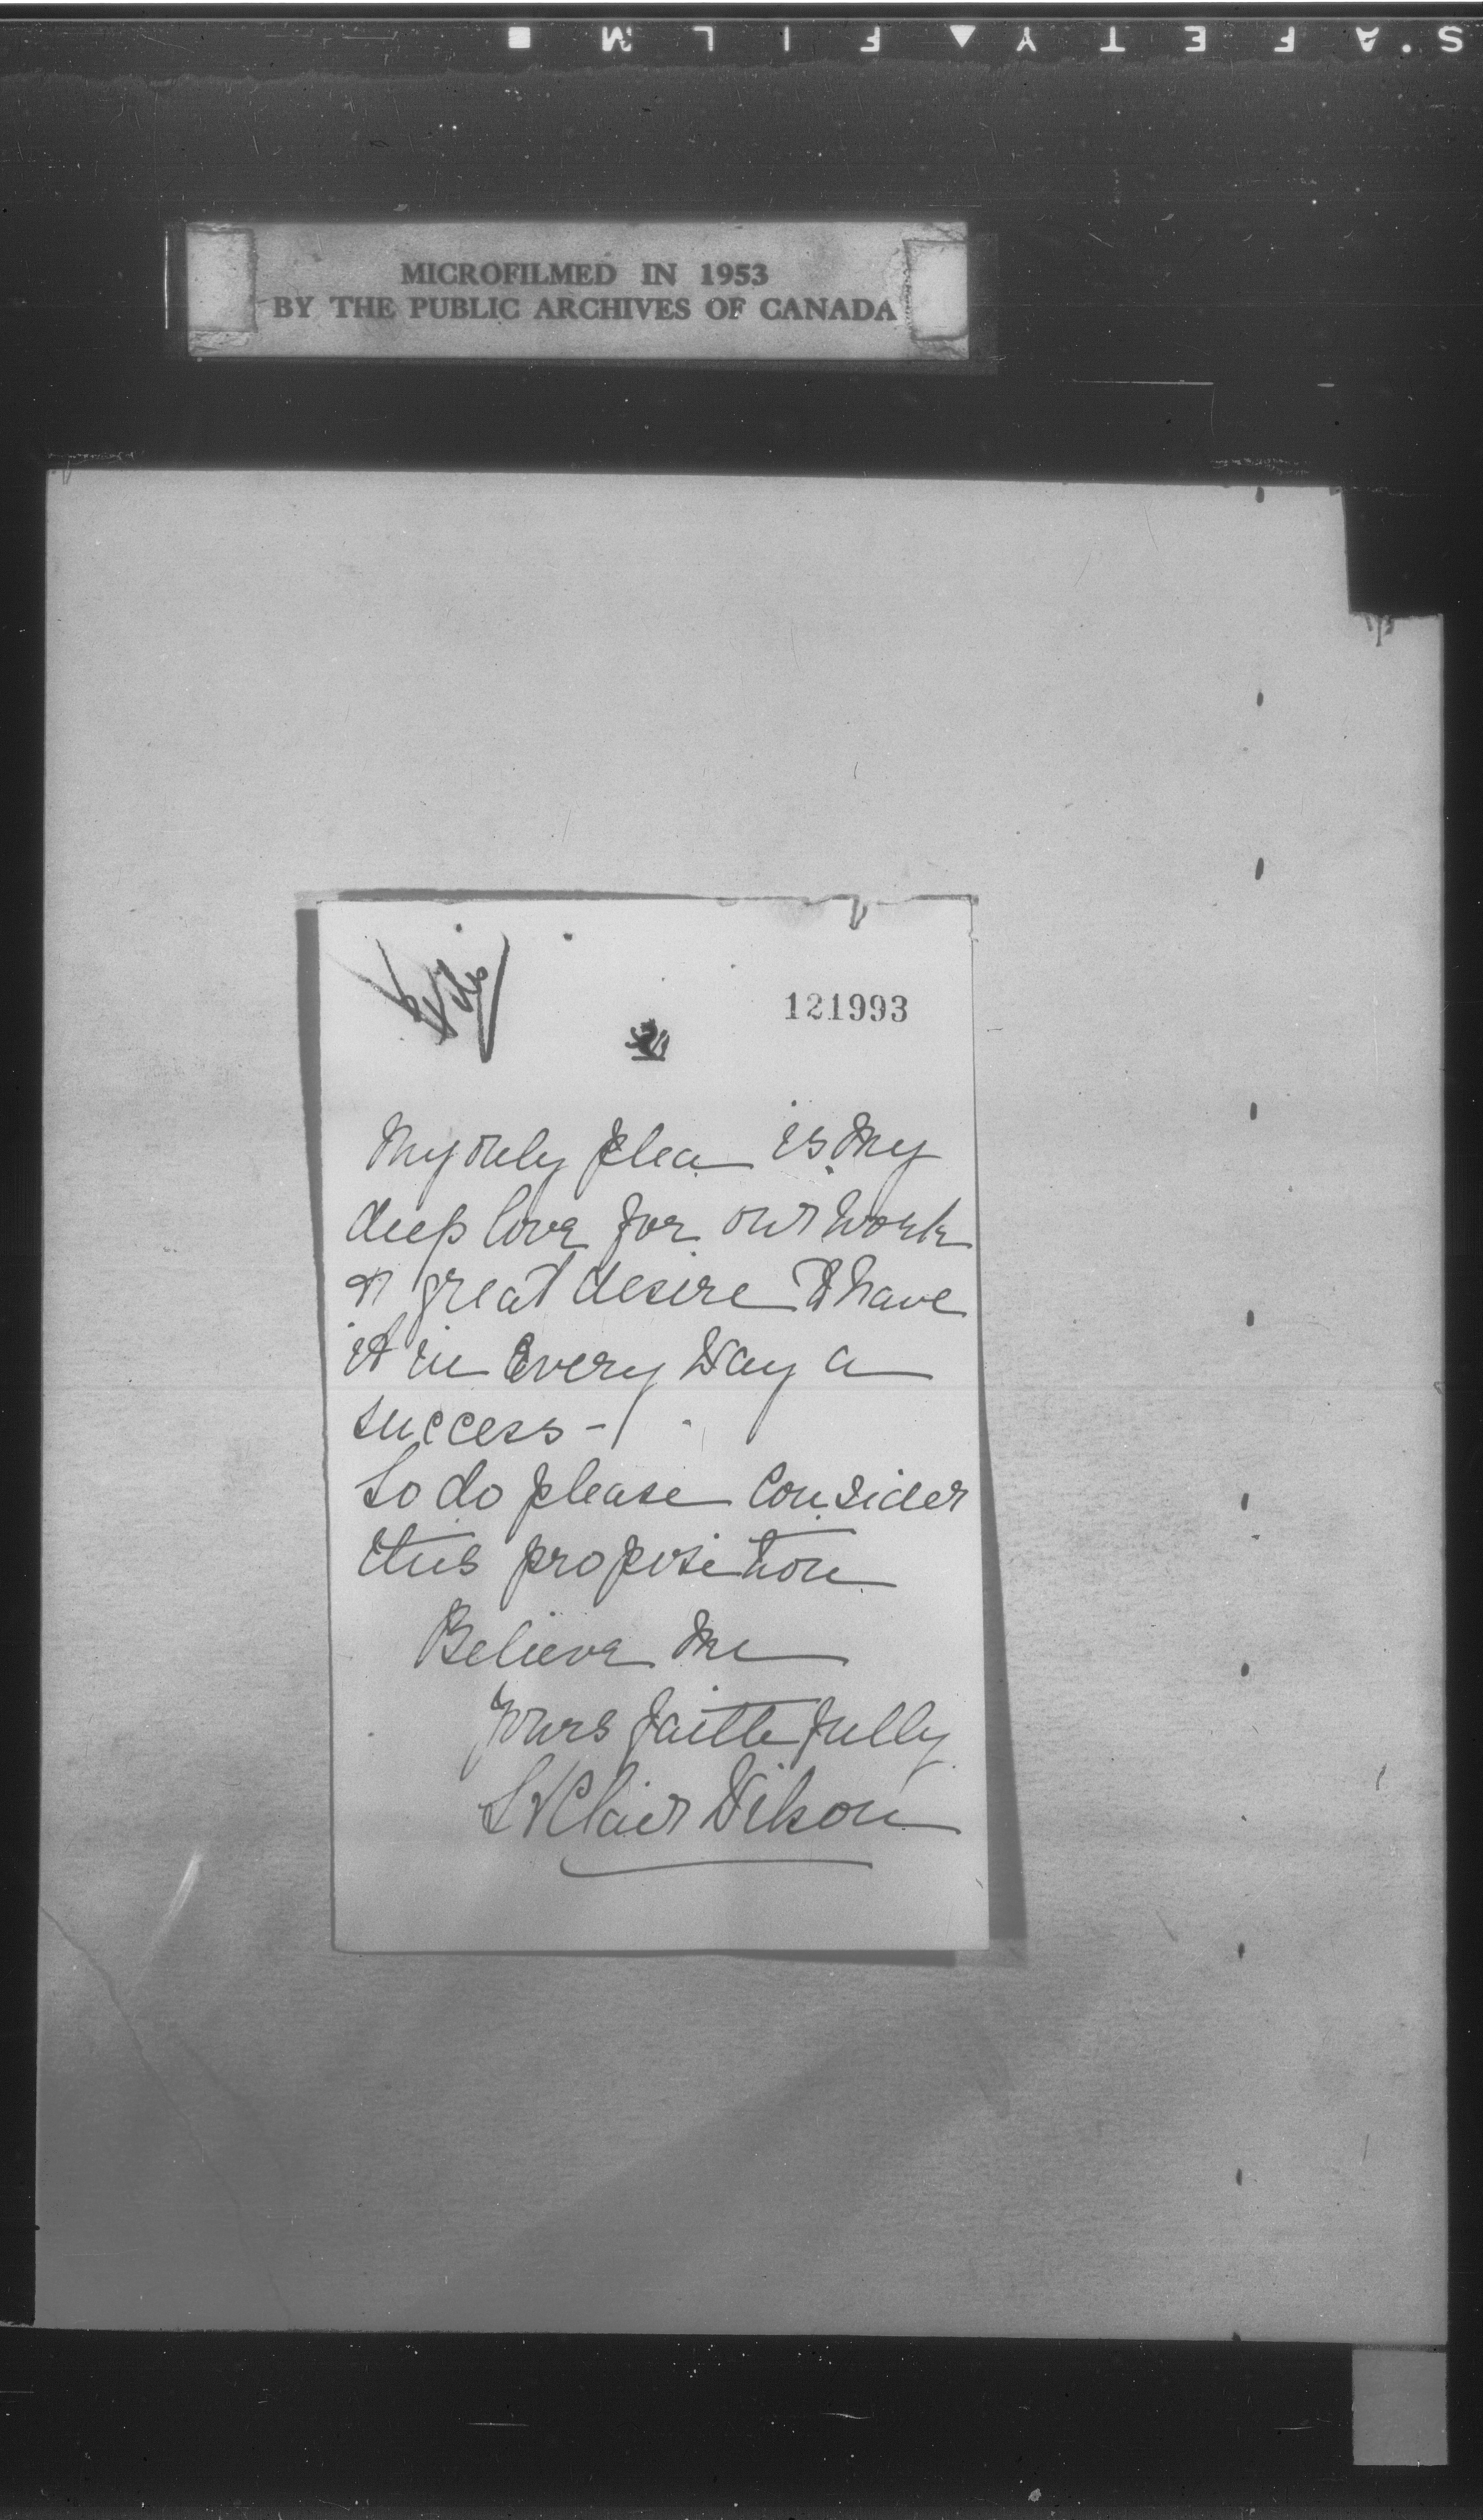 S'AFETY FILM
MICROFILMED IN 1953
BY THE PUBLIC ARCHIVES OF CANADA
121993
My only plea is my
deep love for our work
& great desire to have
it in every way a
success -
So do please consider
this proposition
Believe me
Yours faithfully
St Clair Wilson